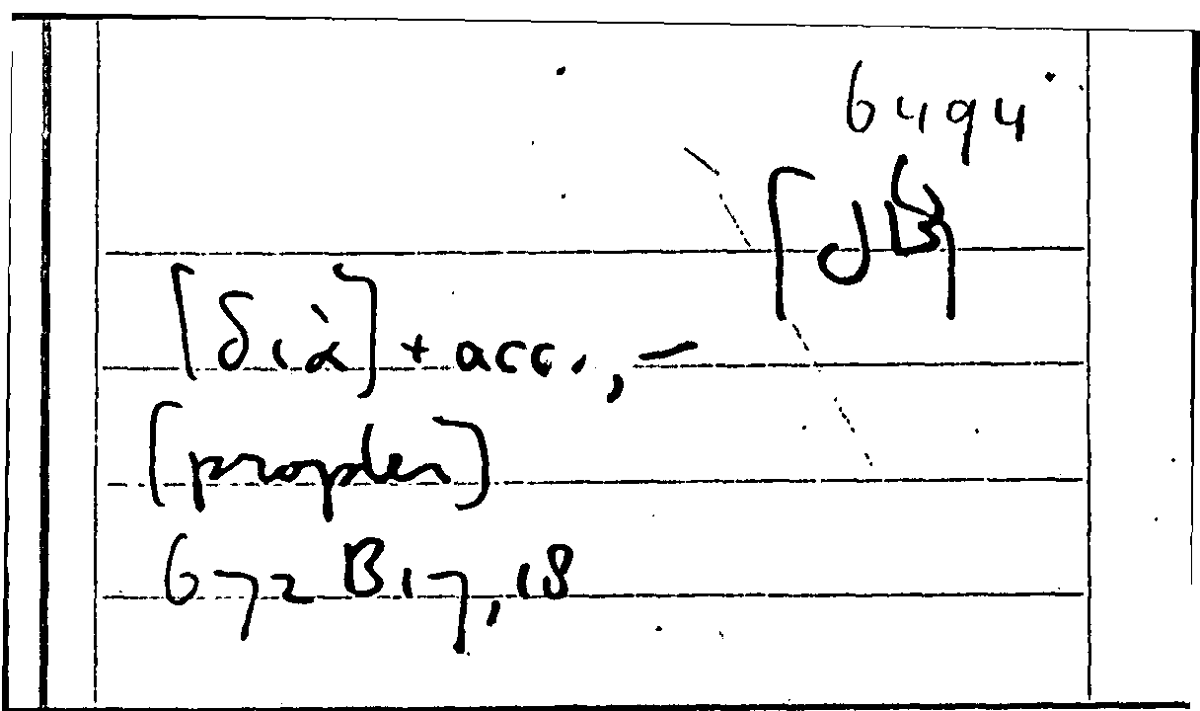 6494
[διὰ] + acc., —
[propter]
672 B17, 18